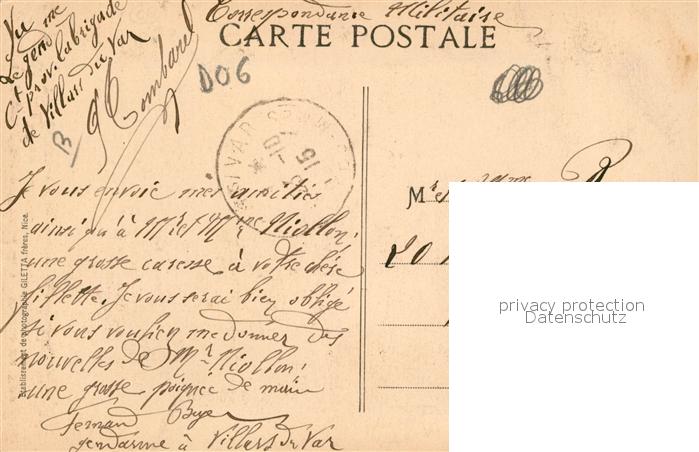 Correspondance Militaire
CARTE POSTALE
Vu me
Le gend
Ct prov. la brigade
de Villars du Var
D06
B
15
Je vous envoie mes amitiés
ainsi qu'à Mr et Mme Niollon,
une grosse caresse à votre chère
fillette. Je vous serai bien obligé
si vous voulien me donner des
nouvelles de Mr Niollon:
une grosse poignée de main
Fernand
gendarme à Villars du Var
Etablissement de photographie GILETTA frères, Nice.
20
privacy protection
Datenschutz